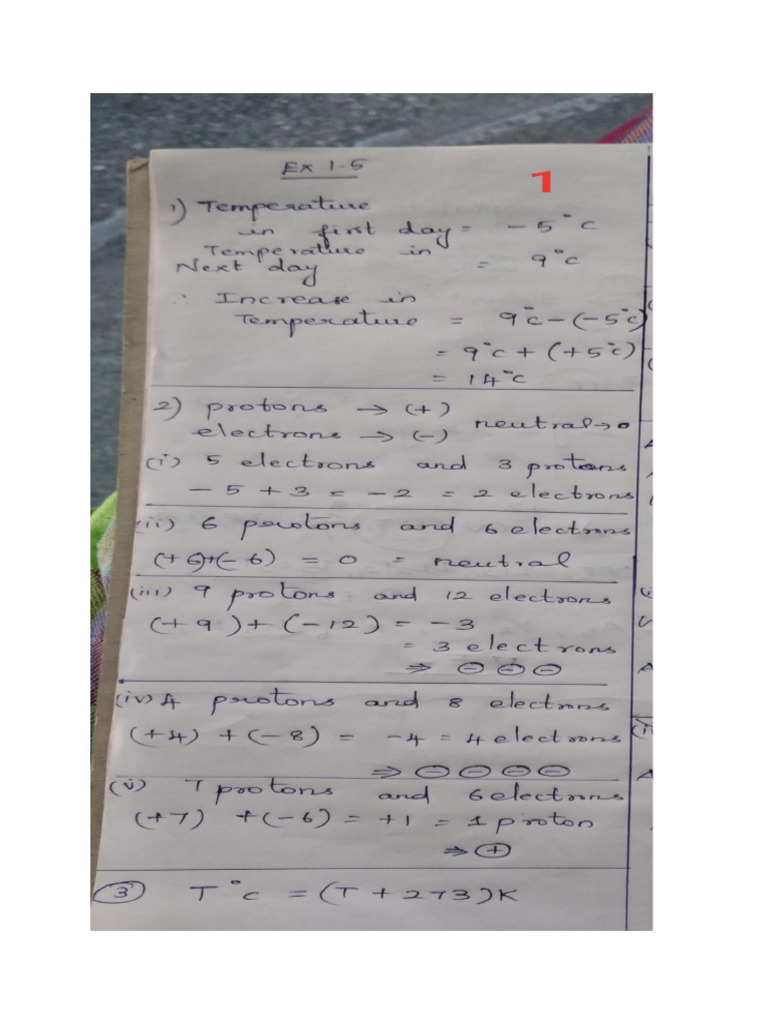 Ex 1.5
1
1) Temperature
in first day = -5°C
Temperature in
Next day = 9°C
∴ Increase in
Temperature = 9°C-(-5°C)
= 9°C+(+5°C)
= 14°C
2) protons → (+)
electrons → (-) neutral→0
(i) 5 electrons and 3 protons
-5+3 = -2 = 2 electrons
(ii) 6 protons and 6 electrons
(+6)+(-6) = 0 = neutral
(iii) 9 protons and 12 electrons
(+9)+(-12) = -3
= 3 electrons
⇒ ⊖ ⊖ ⊖
(iv) 4 protons and 8 electrons
(+4) +(-8) = -4 = 4 electrons
⇒ ⊖ ⊖ ⊖ ⊖
(v) 7 protons and 6 electrons
(+7) +(-6) = +1 = 1 proton
⇒ ⊕
③ T°C = (T+273)K